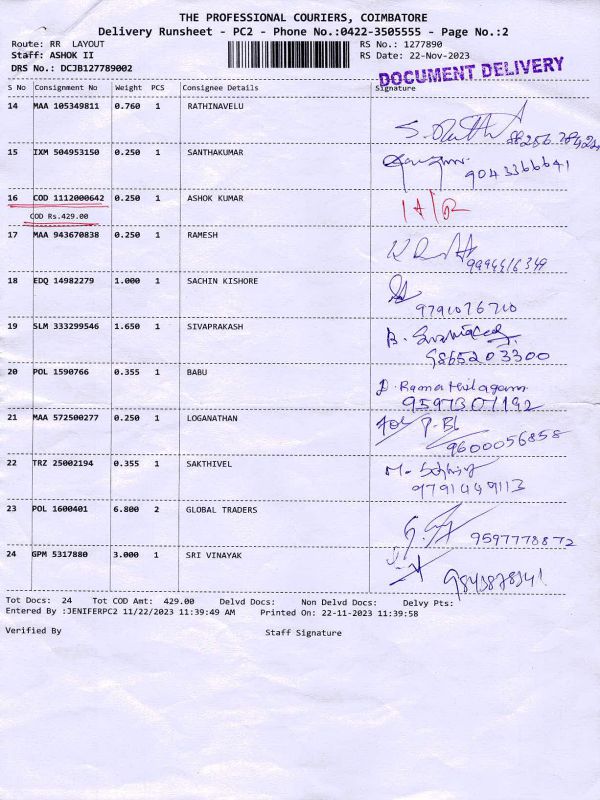 THE PROFESSIONAL COURIERS, COIMBATORE
Delivery Runsheet - PC2 - Phone No.:0422-3505555 - Page No.:2
Route: RR LAYOUT RS No.: 1277890
Staff: ASHOK II RS Date: 22-Nov-2023
DRS No.: DCJB127789002
DOCUMENT DELIVERY
S No Consignment No Weight PCS Consignee Details Signature
14 MAA 105349811 0.760 1 RATHINAVELU
15 IXM 504953150 0.250 1 SANTHAKUMAR
9043366641
16 COD 1112000642 0.250 1 ASHOK KUMAR
COD Rs.429.00
17 MAA 943670838 0.250 1 RAMESH
9994416349
18 EDQ 14982279 1.000 1 SACHIN KISHORE
9791076710
19 SLM 333299546 1.650 1 SIVAPRAKASH
9865203300
20 POL 1590766 0.355 1 BABU
9597307192
21 MAA 572500277 0.250 1 LOGANATHAN
9600056858
22 TRZ 25002194 0.355 1 SAKTHIVEL
9791449113
23 POL 1600401 6.800 2 GLOBAL TRADERS
9597778872
24 GPM 5317880 3.000 1 SRI VINAYAK
Tot Docs: 24 Tot COD Amt: 429.00 Delvd Docs: Non Delvd Docs: Delvy Pts:
Entered By :JENIFERPC2 11/22/2023 11:39:49 AM Printed On: 22-11-2023 11:39:58
Verified By Staff Signature